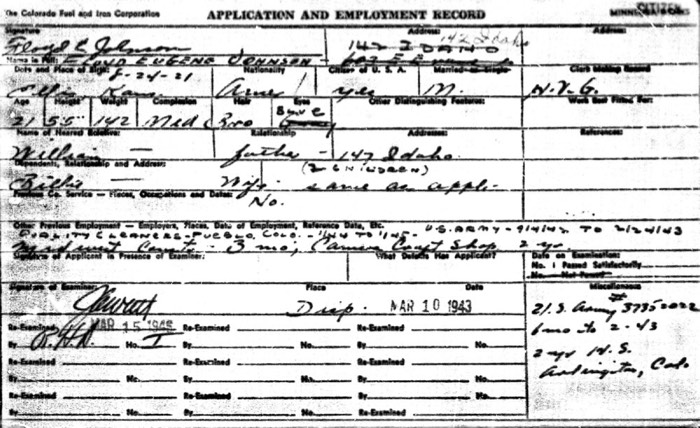 The Colorado Fuel and Iron Corporation APPLICATION AND EMPLOYMENT RECORD
Signature Address: 142 Idaho Address:
Floyd E Johnson 142 IDAHO
Name in Full: FLOYD EUGENE JOHNSON -
Date and Place of Birth: 8-24-21 Nationality Citizen of U. S. A. Married or Single Clerk Making Record
Ellis Kans. Amer yes M. N.V.G.
Age Height Weight Complexion Hair Eyes Other Distinguishing Features: Work Best Fitted For:
21 5 5 142 Med Bro Blue
Name of Nearest Relative: Relationship Addresses: References:
William — father — 147 Idaho.
Dependents, Relationship and Address: (2 CHILDREN)
Billie — Wife same as appli-
Previous Co. Service — Places, Occupations and Dates: No.
Other Previous Employment — Employers, Places, Date of Employment, Reference Data, Etc.
CLEANERS - PUEBLO, COLO. - U.S. ARMY - 9/4/42 TO 2/24/43
Midwest - 3 mo, Court Shop 2 yr
Signature of Applicant in Presence of Examiner: What Defects Has Applicant? Date on Examination:
No. 1 Passed Satisfactorily
No. Not Passed
Signature of Examiner: Place Date Miscellaneous
Disp. MAR 10 1943
U.S. Army
6 mo to 2-43
2 yrs H.S.
Arlington, Colo
Re-Examined MAR 15 Re-Examined Re-Examined
By No. I By No. By No.
Re-Examined Re-Examined Re-Examined
By No. By No. By No.
Re-Examined Re-Examined Re-Examined
By No. By No. By No.
Re-Examined Re-Examined Re-Examined
By No. By No. By No.